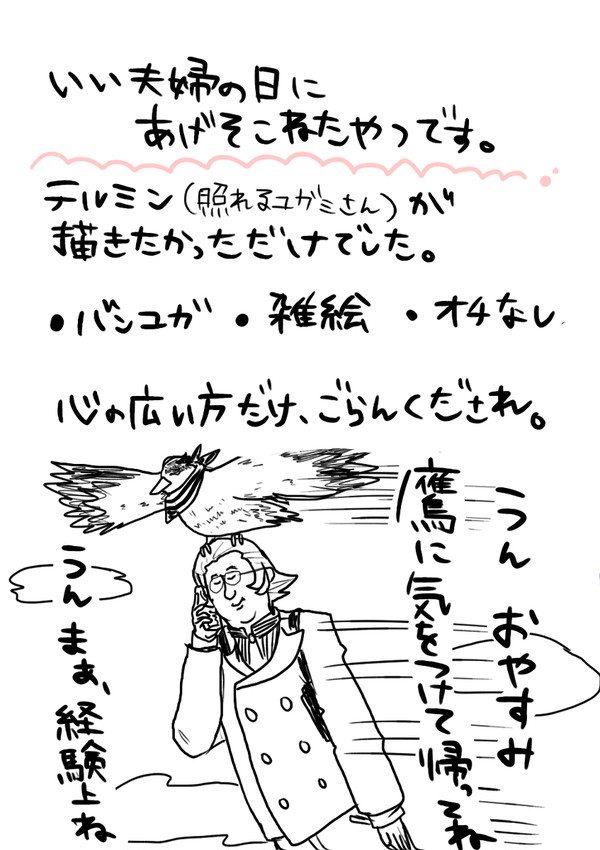 いい夫婦の日に
あげそこねたやつです。
テルミン(照れるユガミさん)が
描きたかっただけでした。
・バンユガ ・雑絵 ・オチなし
心の広い方だけ、ごらんくだされ。
うん おやすみ
鷹に気をつけて帰ってね
うん まぁ、経験上ね